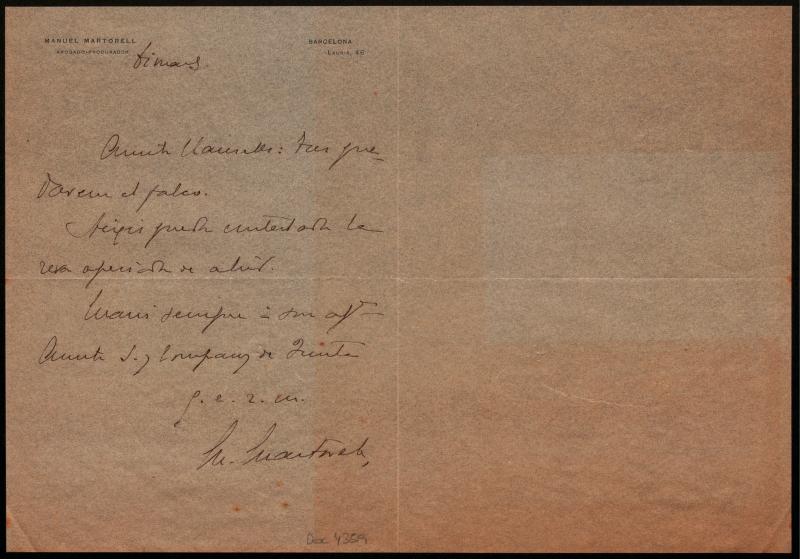 MANUEL MARTORELL
ABOGADO-PROCURADOR
BARCELONA
Lauria, 46
dimars
Amich : Nos que-
darem el palco.
Aixis queda contestada la
seva apreciada de ahir.
Mani sempre à son afm
Amich S. y Company de Junta
q. e. s. m.
M. Martorell
Doc 4359